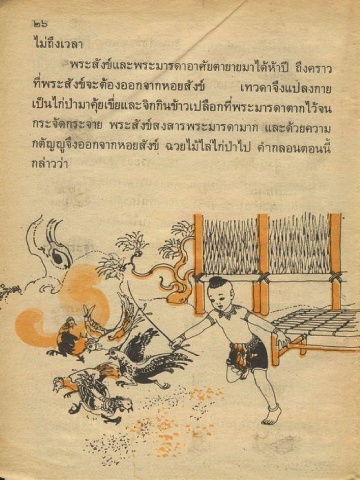 ๒๖
ไม่ถึงเวลา
พระสังข์และพระมารดาอาศัยตายายมาได้ห้าปี ถึงคราว
ที่พระสังข์จะต้องออกจากหอยสังข์ เทวดาจึงแปลงกาย
เป็นไก่ป่ามาคุ้ยเขี่ยและจิกกินข้าวเปลือกที่พระมารดาตากไว้จน
กระจัดกระจาย พระสังข์สงสารพระมารดามาก และด้วยความ
กตัญญูจึงออกจากหอยสังข์ ฉวยไม้ไล่ไก่ป่าไป คำกลอนตอนนี้
กล่าวว่า